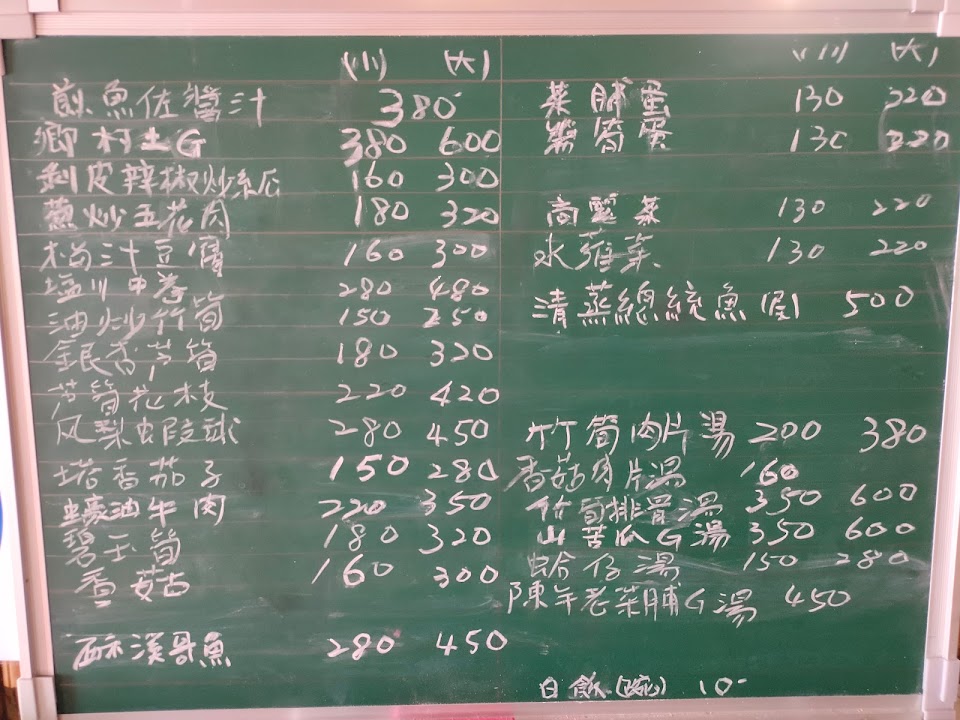 (小) (大)
煎魚佐醬汁 380
鄉村土G 380 600
剝皮辣椒炒絲瓜 160 300
蔥炒五花肉 180 320
梅汁豆腐 160 300
塩川中卷 280 480
油炒竹筍 150 250
銀杏芦筍 180 320
芦筍花枝 220 420
风梨虫段球 280 450
塔香茄子 150 280
蠔油牛肉 220 350
碧玉筍 180 320
香菇 160 300
酥溪哥魚 280 450
(小) (大)
菜脯蛋 130 220
筍蛋 130 220
高麗菜 130 220
水蕹菜 130 220
清蒸總統魚(半) 500
竹筍肉片湯 200 380
香菇肉片湯 160
竹筍排骨湯 350 600
山苦瓜G湯 350 600
蛤仔湯 150 280
陳年老菜脯G湯 450
白飯(碗) 10